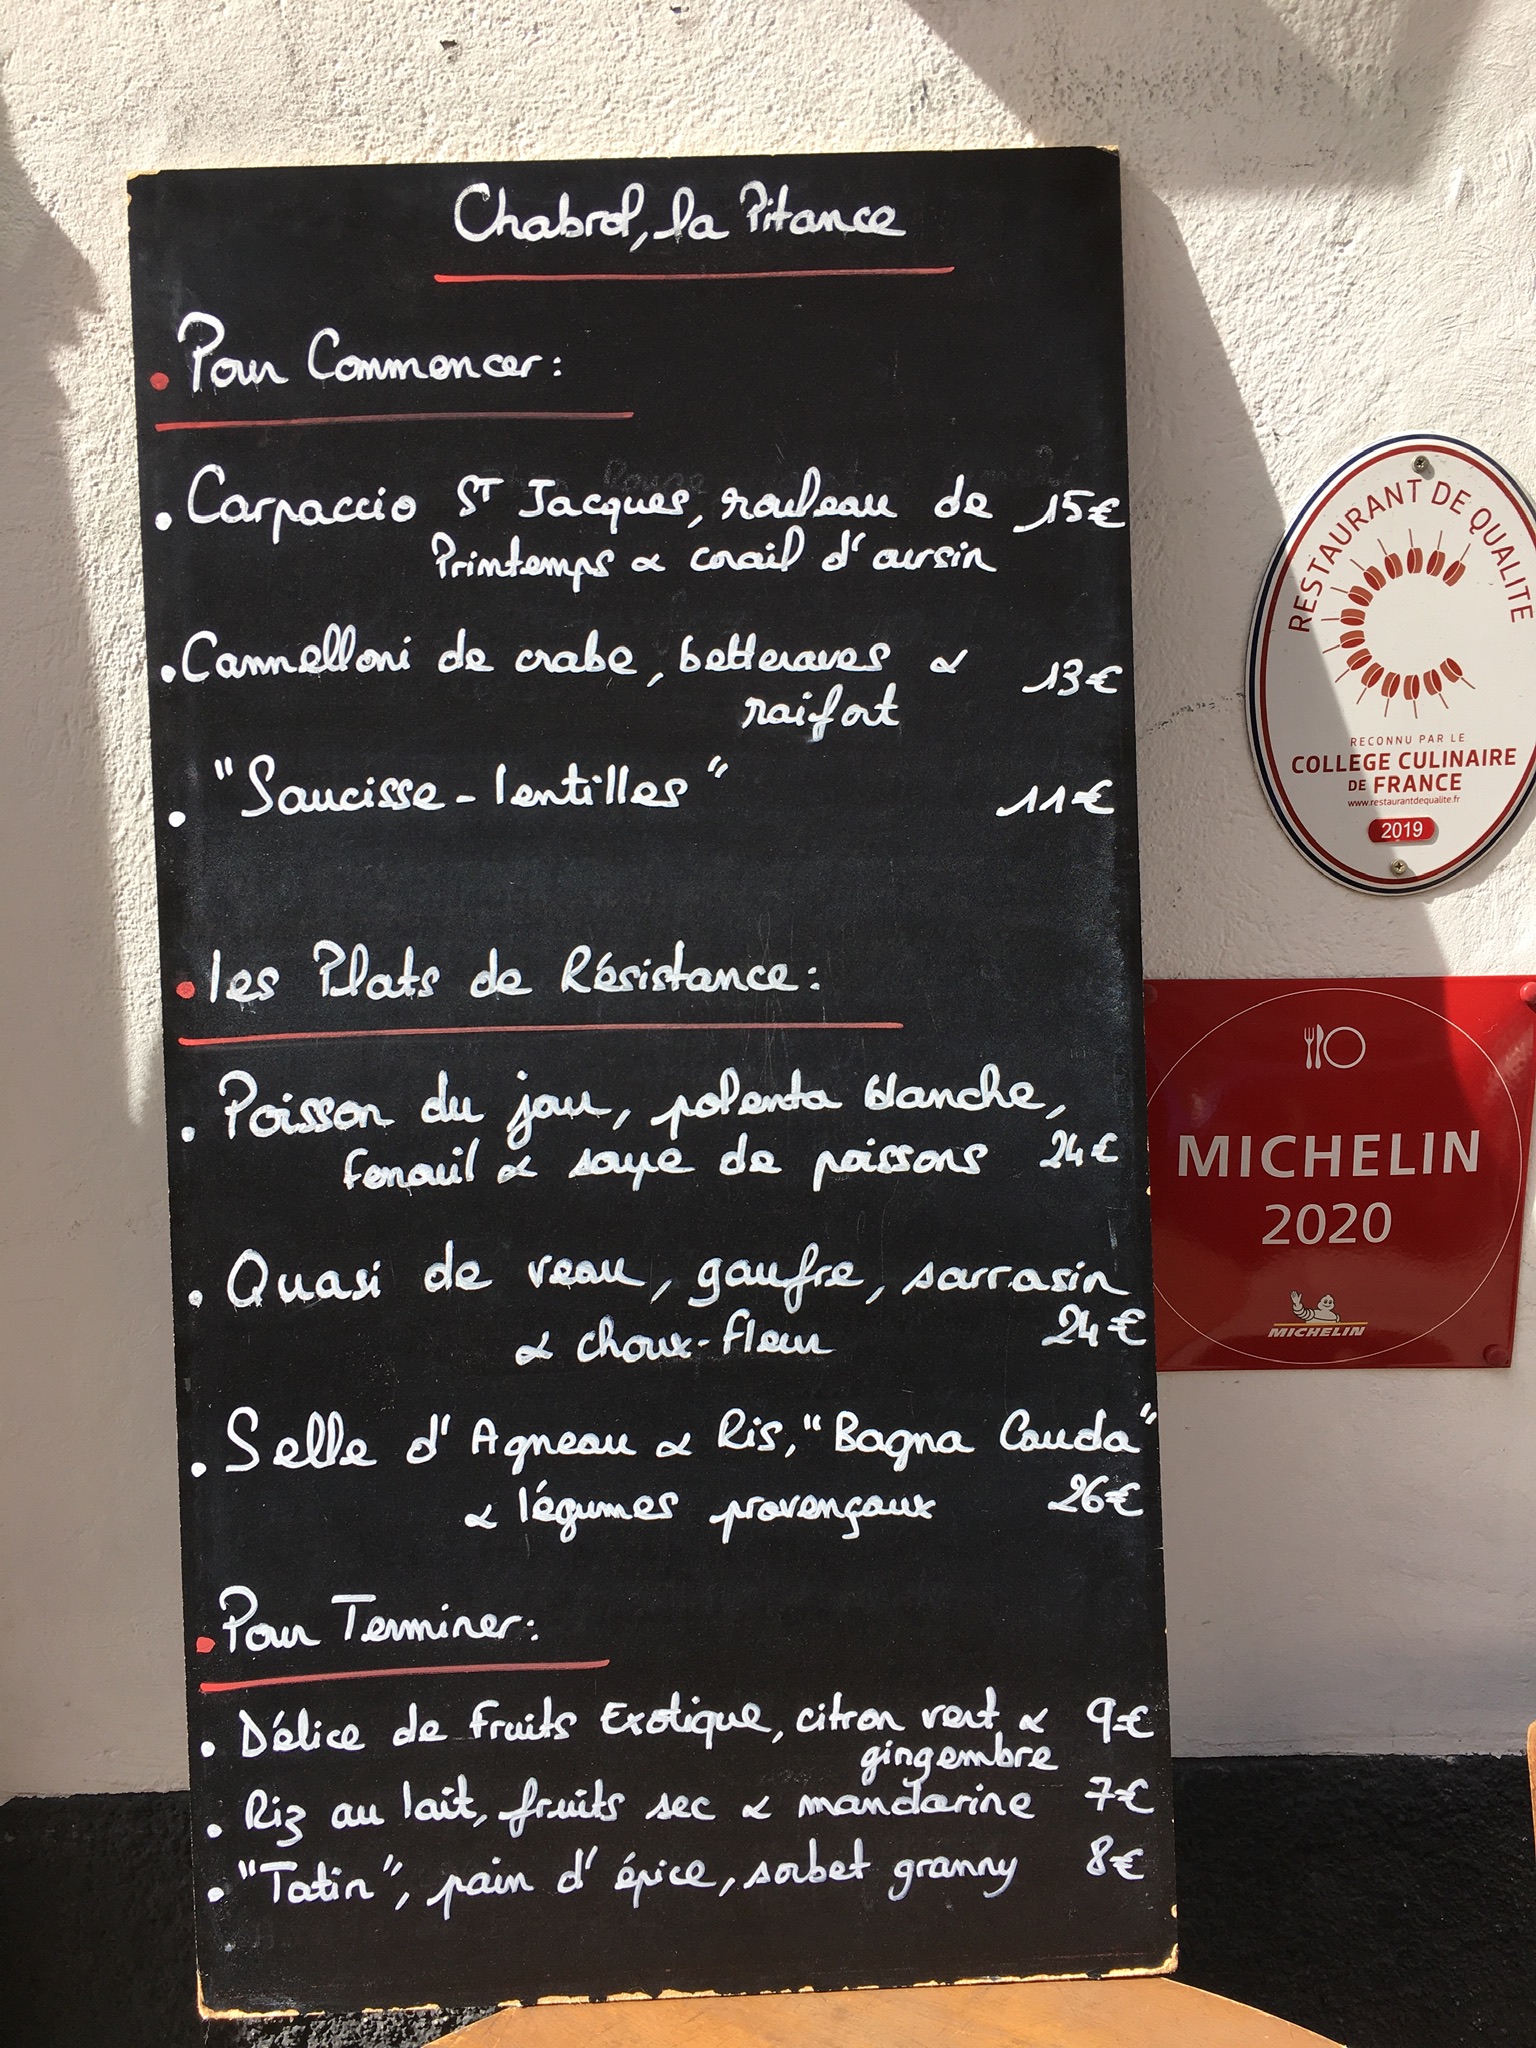 Chabrol, la Pitance
• Pour Commencer :
• Carpaccio St Jacques, rouleau de 15€
Printemps & corail d'oursin
• Cannelloni de crabe, betteraves & 13€
raifort
• "Saucisse - lentilles" 11€
• les Plats de Résistance :
• Poisson du jour, polenta blanche,
Fenouil & soupe de poissons 24€
• Quasi de veau, gaufre, sarrasin
& choux-fleur 24€
• Selle d'Agneau & Ris, "Bagna Cauda"
& légumes provençaux 26€
• Pour Terminer :
• Délice de fruits Exotique, citron vert & 9€
gingembre
• Riz au lait, fruits sec & mandarine 7€
• "Tatin", pain d'épice, sorbet granny 8€
RESTAURANT DE QUALITE
RECONNU PAR LE
COLLEGE CULINAIRE
DE FRANCE
www.restaurantdequalite.fr
2019
MICHELIN
2020
MICHELIN